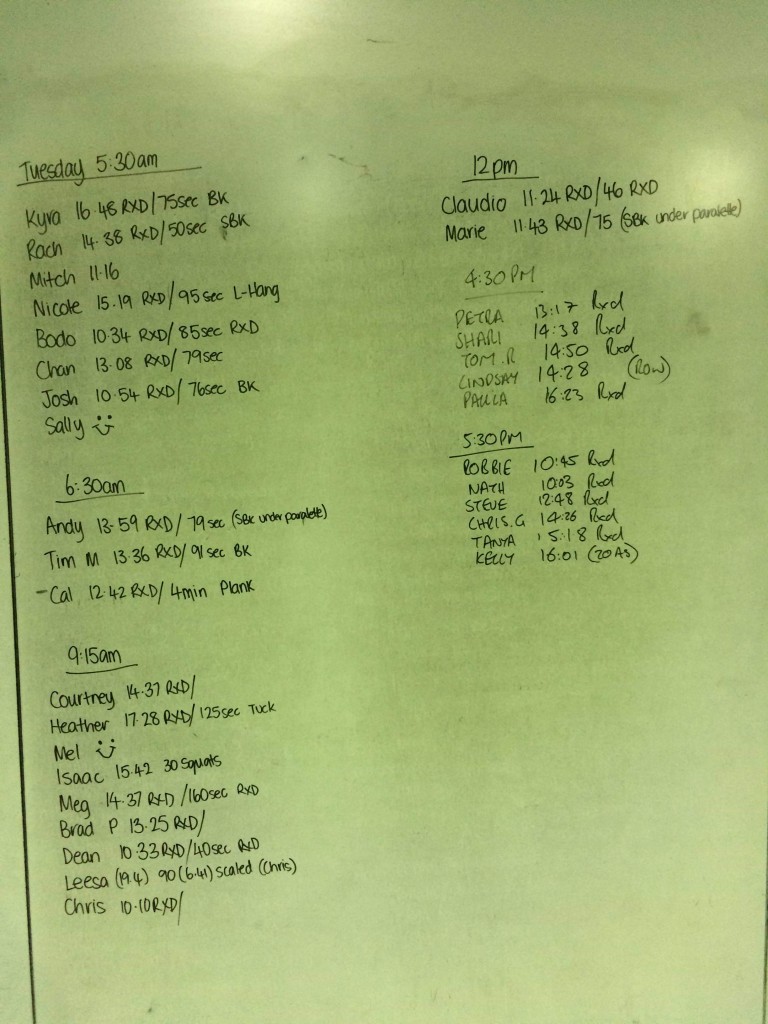 Tuesday 5:30am
Kyra 16.48 RXD/75sec BK
Rach 14.38 RXD/50sec SBK
Mitch 11.16
Nicole 15.19 RXD/95sec L-Hang
Bodo 10.34 RXD/85sec RXD
Chan 13.08 RXD/79sec
Josh 10.54 RXD/76sec BK
Sally
6:30am
Andy 13.59 RXD/79sec (SBK under paralette)
Tim M 13.36 RXD/91sec BK
-Cal 12.42 RXD/4min Plank
9:15am
Courtney 14.37 RXD/
Heather 17.28 RXD/125sec Tuck
Mel
Isaac 15.42 30 squats
Meg 14.37 RXD/160sec RXD
Brad P 13.25 RXD/
Dean 10.33 RXD/40sec RXD
Leesa (19.4) 90 (6.41) scaled (Chris)
Chris 10.10 RXD/
12pm
Claudio 11.24 RXD/46 RXD
Marie 11.43 RXD/75 (SBK under paralette)
4:30PM
PETRA 13:17 Rxd
SHARI 14:38 Rxd
TOM.R 14:50 Rxd
LINDSAY 14:28 (ROW)
PAULA 16:23 Rxd
5:30PM
ROBBIE 10:45 Rxd
NATH 10:03 Rxd
STEVE 12:48 Rxd
CHRIS.G 14:26 Rxd
TANYA 15:18 Rxd
KELLY 16:01 (20AS)